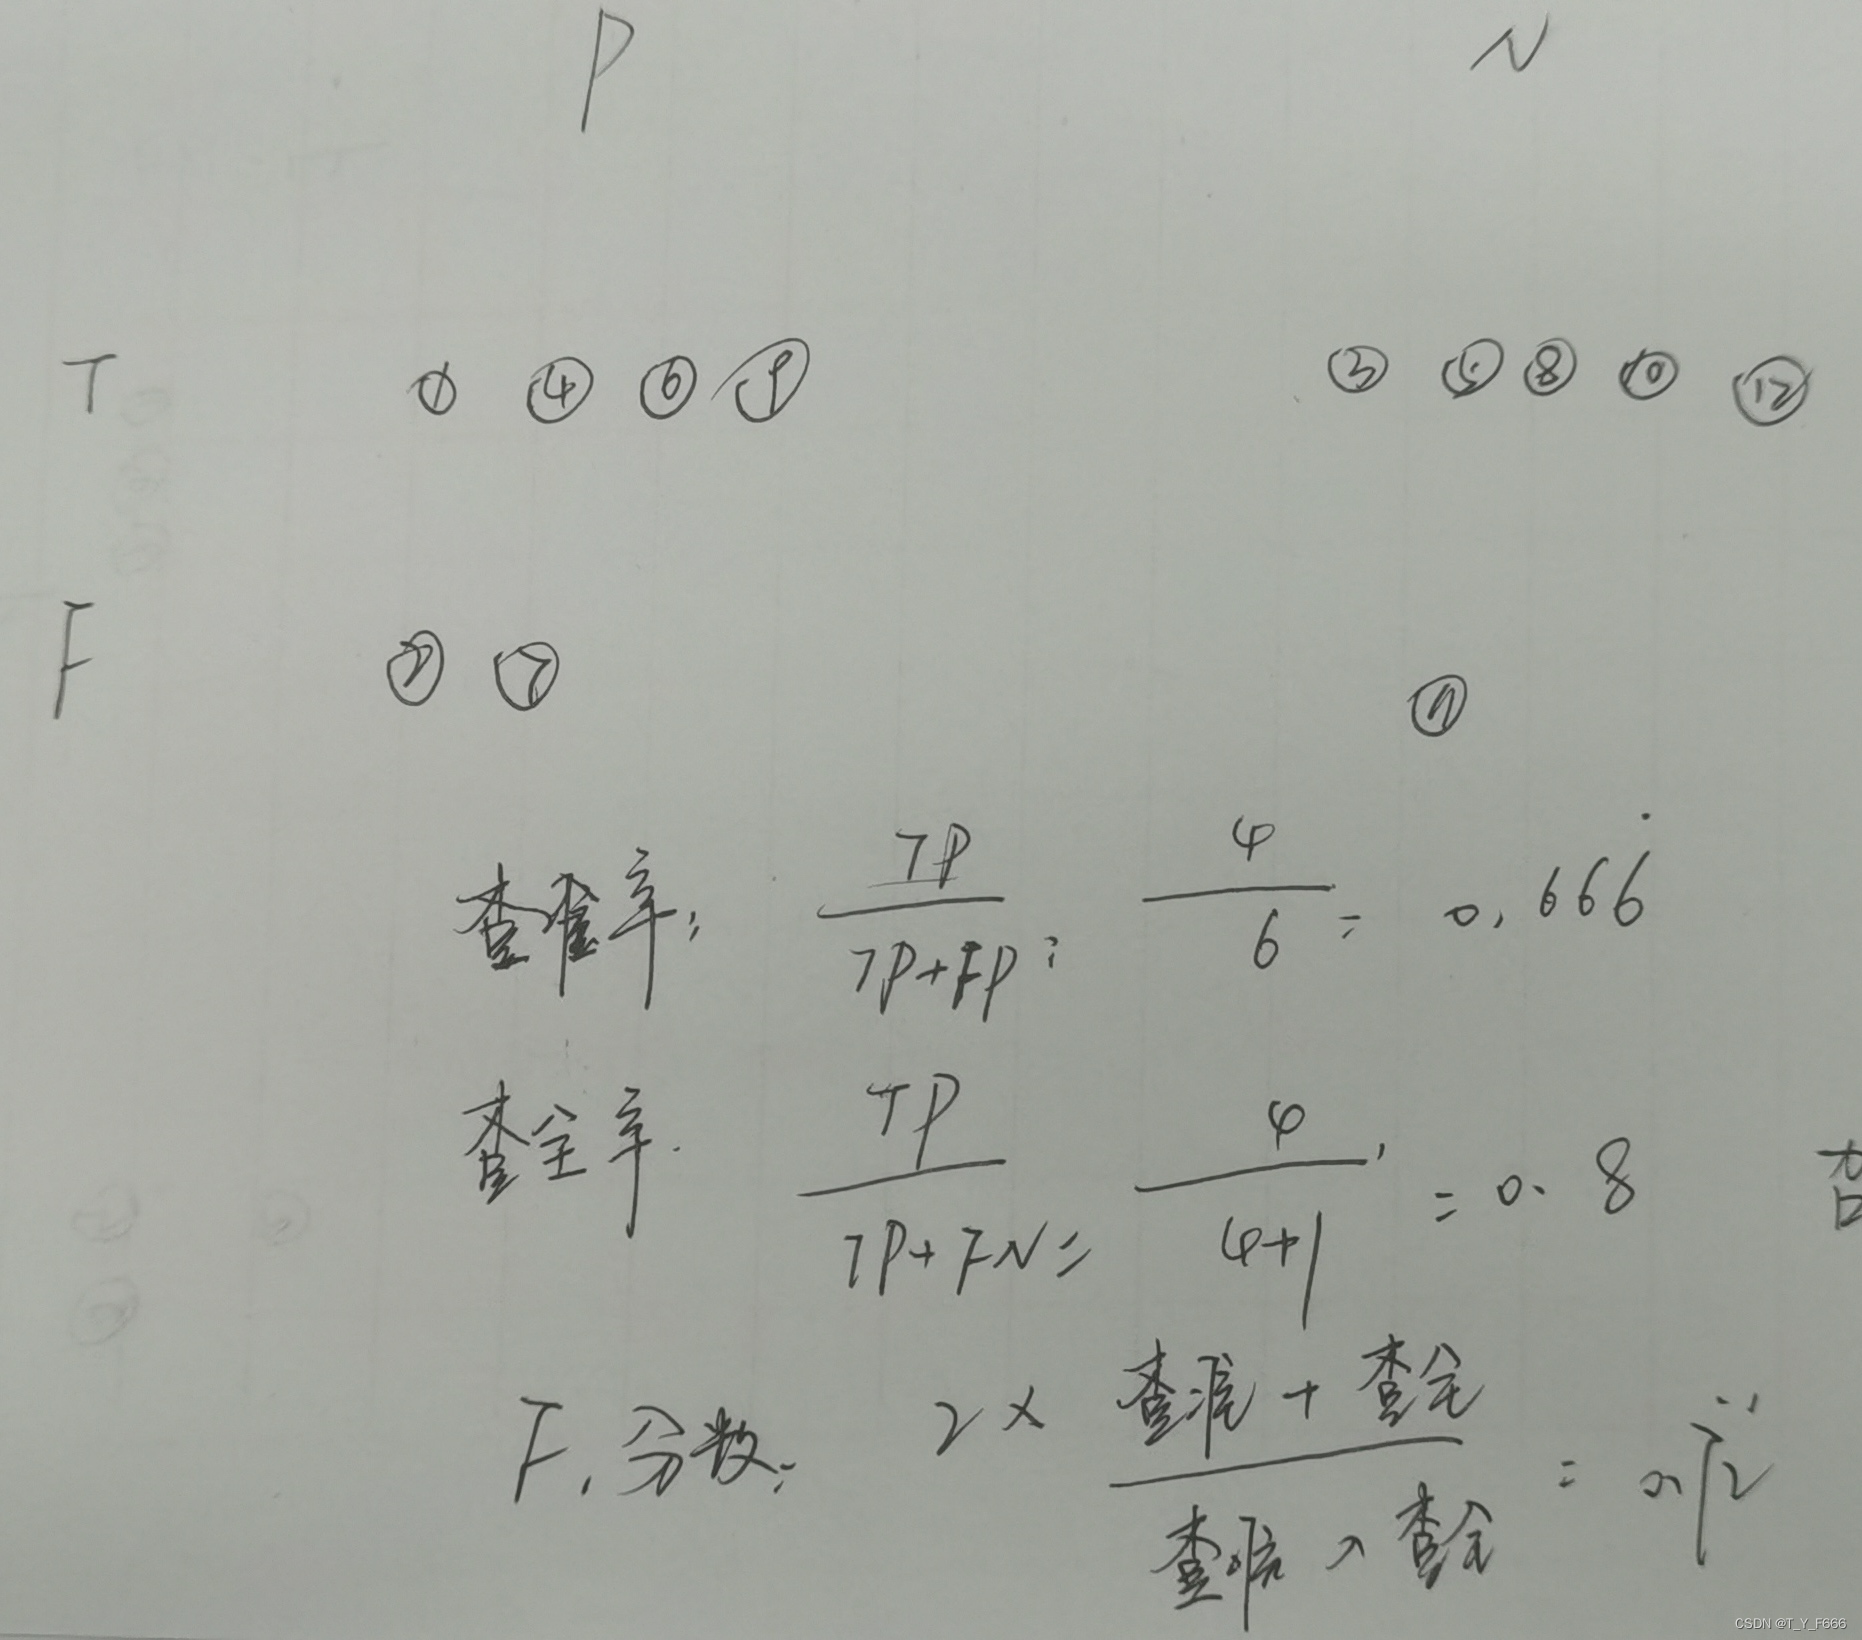 P N
T ① ④ ⑥ ⑨ ③ ⑤ ⑧ ⑩ ⑫
F ② ⑦ ⑪
查准率: TP/(TP+FP) = 4/6 = 0.666̇
查全率. TP/(TP+FN) = 4/(4+1) = 0.8
F1分数: 2 × (查准 + 查全)/(查准 × 查全) =
CSDN @T_Y_F666